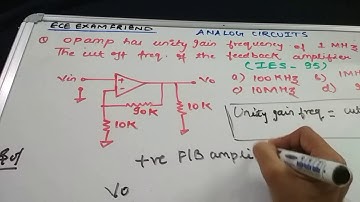 ECE EXAM FRIEND
ANALOG CIRCUITS
Q OPamp has unity gain frequency of 1 MHz
The cut off freq. of the feedback amplifier
(IES-95)
a) 100KHz b) 1M
c) 10MHz d)
Vin
+
-
Vo
90K
10K
10K
Unity gain freq = cut
Sol
+ve F/B ampli
Vo